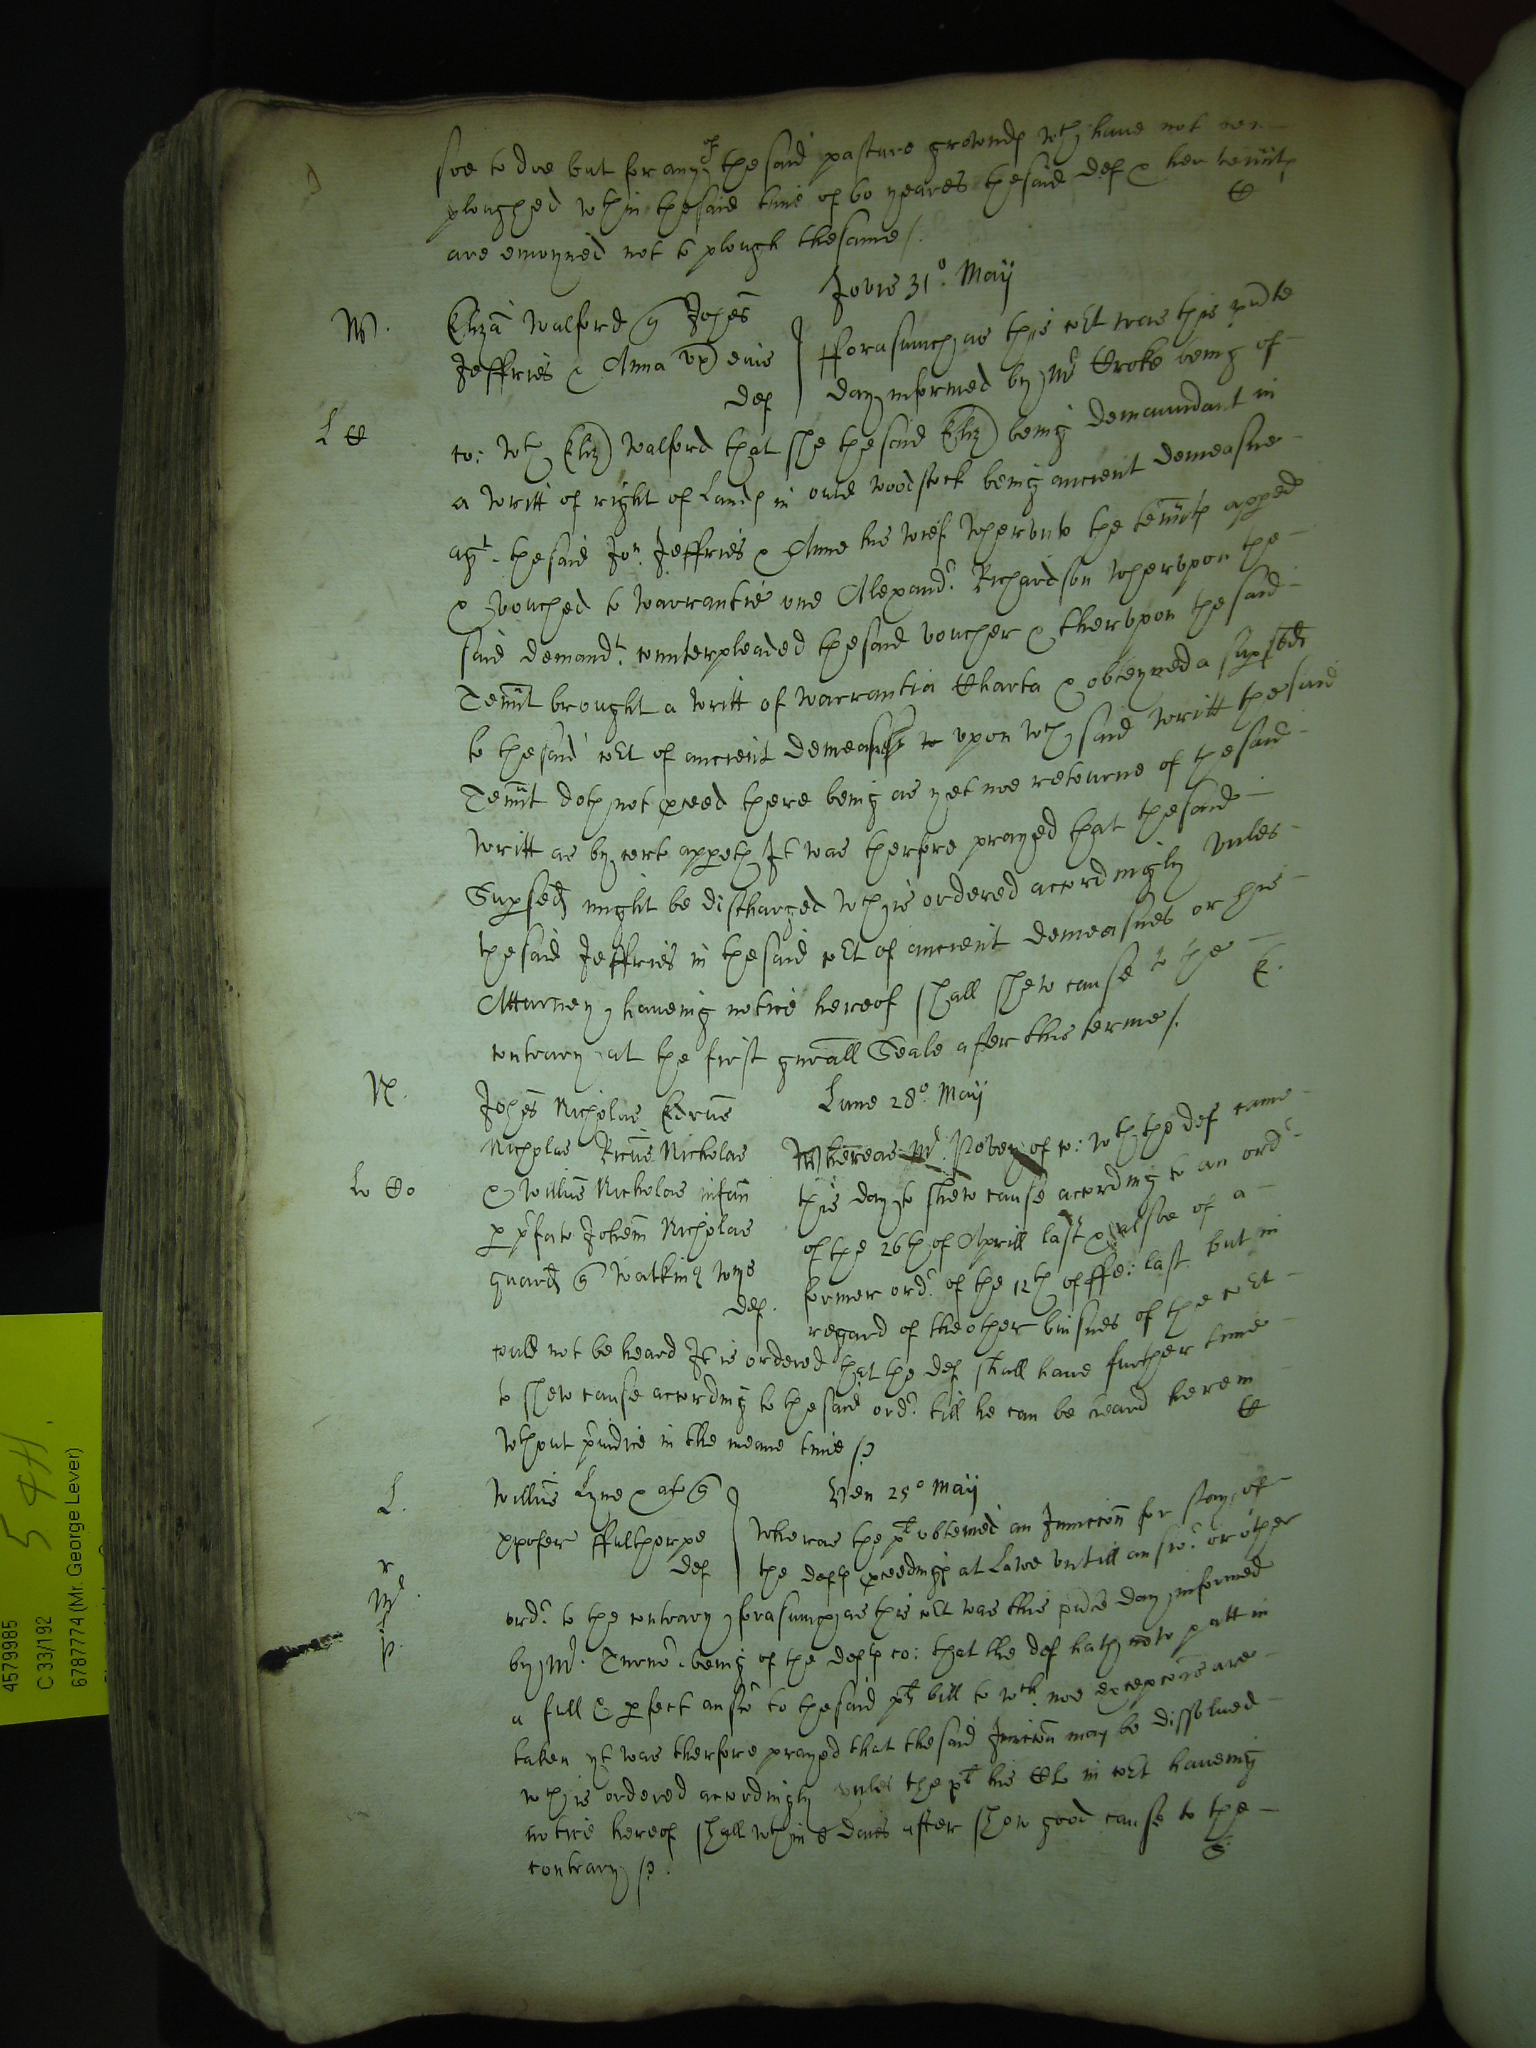 soe to doe but for any of the said pasture grownds wch have not ben
ploughed wthin the said time of 60 yeares the said def & her tennts
are enioyned not to plough the same /.
Jovis 31o. Maij
W.
Eliza Walford q Johes
Jeffries & Anna ux eius
def
fforasmuch as this cot was this pnte
day informed by Mr Croke being of
L C
co: wth Eliz Walford that she the said Eliz being demaundant in
a writt of right of Lands in ould woodstock being ancient demeasne
agt. the said Jon. Jeffries & Anne his wief wherunto the tennts apped
& vouched to warrantie one Alexandr. Richardson wherupon the
said demandt. counterpleaded the said voucher & therupon the said
Tennt brought a writt of warrantia Charta & obteyned a supsed
to the said cot of ancient demeasne upon wch said writt the said
Tennt doth not pceed there being as yet noe retourne of the said
writt as by cert appeth It was therfore prayed that the said
Supsed might be discharged wch is ordered accordingly unles
the said Jeffries in the said cot of ancient demeasnes or his
Atturney haveing notice hereof shall shew cause to the
contrary at the first gnrall Seale after this terme /.
N.
Johes Nicholas Edrus
Nicholas Ricus Nicholas
& Willus Nicholas infan
p pfato Johem Nicholas
guard q Watking Wms
def.
Lune 28o. Maij
Whereas Mr. Povey of co: wth the def came
this day to shew cause according to an ordr
of the 26th of Aprill last & alsoe of a
former ordr. of the 12th of ffe: last but in
regard of the other buisnes of the cot
could not be heard It is ordered that the def shall have further time
to shew cause according to the said ordr. till he can be heard herein
wthout piudice in the meane time /.
L.
Willus Lyne & al q
Xpofer ffulthorpe
def
Ven 25o Maij
Wheras the pl obteined an Iniunccon for stay of
the defts pceedings at Lawe untill answr. or other
ordr. to the contrary forasmuch as this cot was this pnte day informed
by Mr. Turnr. being of the defts co: that the def hath now putt in
a full & pfect answ to the said pl bill to wch noe excepcons are
taken yt was therfore prayed that the said Iniunccon may be dissolved
wch is ordered accordingly unles the pl his Cl in cot haveing
notice hereof shall wthin 8 daies after shew good cause to the
contrary /.
54H
4579985
C 33/192
6787774 (Mr. George Lever)